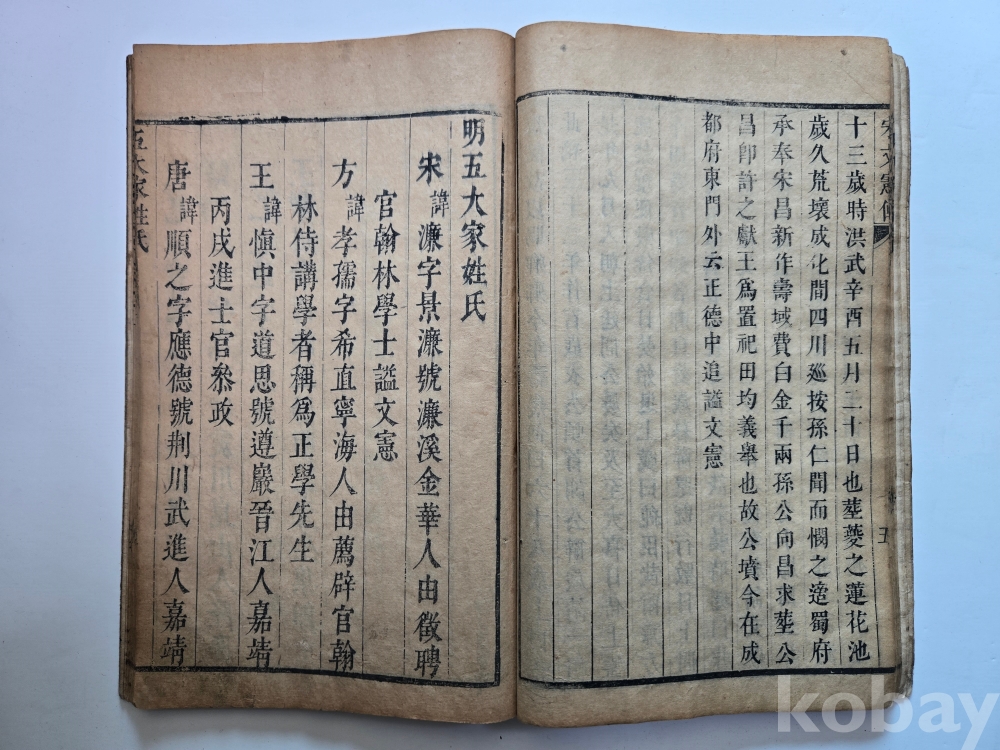 宋文憲傳
五
十三歲時洪武辛酉五月二十日也塟夔之蓮花池
歲久荒壞成化間四川廵按孫仁聞而憫之適蜀府
承奉宋昌新作壽域費白金千兩孫公向昌求塟公
昌卽許之獻王爲置祀田均義舉也故公墳今在成
都府東門外云正德中追謚文憲
明五大家姓氏
宋諱濂字景濂號濂溪金華人由徵聘
官翰林學士謚文憲
方諱孝孺字希直寧海人由薦辟官翰
林侍講學者稱爲正學先生
王諱愼中字道思號遵巖晉江人嘉靖
丙戌進士官叅政
唐諱順之字應德號荆川武進人嘉靖
五大家姓氏
kobay